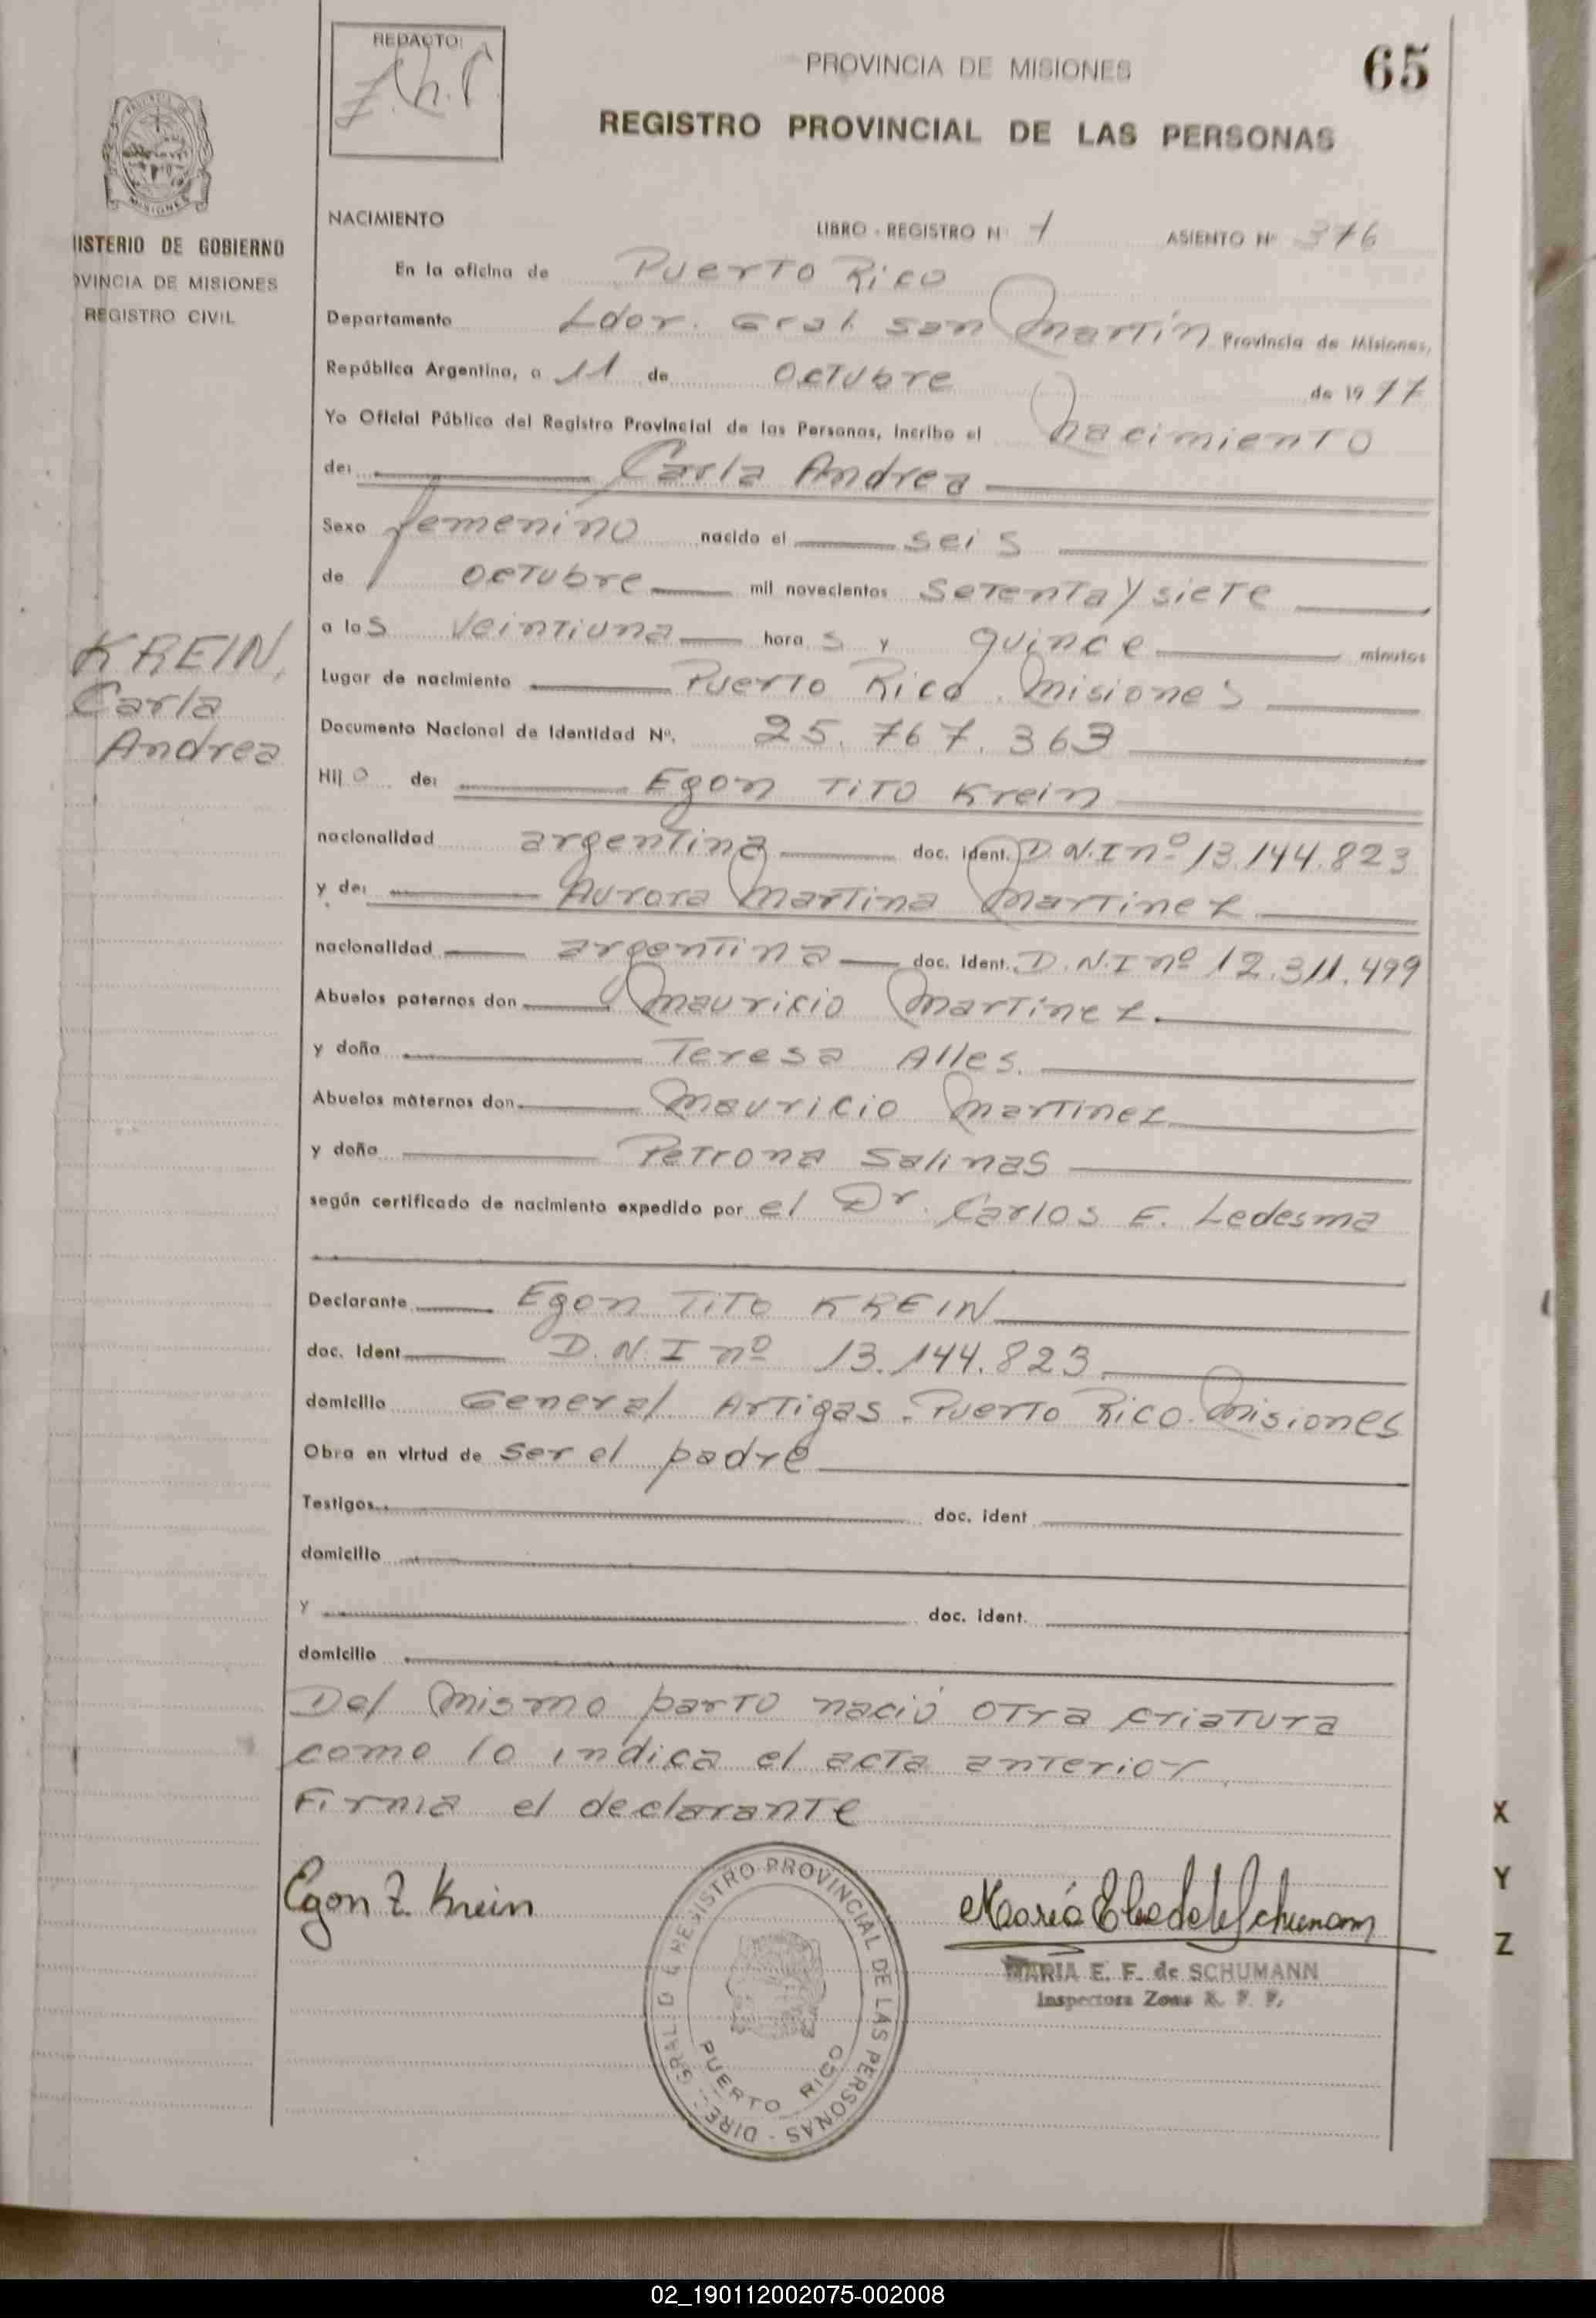 REDACTO:
PROVINCIA DE MISIONES
65
REGISTRO PROVINCIAL DE LAS PERSONAS
MISIONES
NISTERIO DE GOBIERNO
OVINCIA DE MISIONES
REGISTRO CIVIL
NACIMIENTO LIBRO - REGISTRO Nº 1 ASIENTO Nº 376
En la oficina de Puerto Rico
Departamento Ldor. Gral. San Martín Provincia de Misiones,
República Argentina, a 11 de octubre de 1977
Yo Oficial Público del Registro Provincial de las Personas, incribo el nacimiento
de: Carla Andrea
Sexo femenino nacido el seis
de octubre mil novecientos setenta y siete
a las veintiuna horas y quince minutos
KREIN,
Carla
Andrea
Lugar de nacimiento Puerto Rico. Misiones
Documento Nacional de Identidad Nº. 25.767.363
Hijo de: Egon Tito Krein
nacionalidad argentina doc. ident. D.N.I nº 13.144.823
y de: Aurora Martina Martinez
nacionalidad argentina doc. ident. D.N.I nº 12.311.499
Abuelos paternos don Mauricio Martínez.
y doña Teresa Alles.
Abuelos maternos don Mauricio Martinez
y doña Petrona Salinas
según certificado de nacimiento expedido por el Dr. Carlos E. Ledesma
Declarante Egon Tito KREIN
doc. ident D.N.I nº 13.144.823
domicilio General Artigas. Puerto Rico. Misiones
Obra en virtud de ser el padre
Testigos doc. ident
domicilio
y doc. ident.
domicilio
Del mismo parto nació otra criatura
como lo indica el acta anterior.
Firma el declarante
Egon T. Krein
MARIA E. F. de SCHUMANN
Inspectora Zona R. P. P.
DIRE. GRAL. D L REGISTRO PROVINCIAL DE LAS PERSONAS -
PUERTO RICO
X
Y
Z
02_190112002075-002008